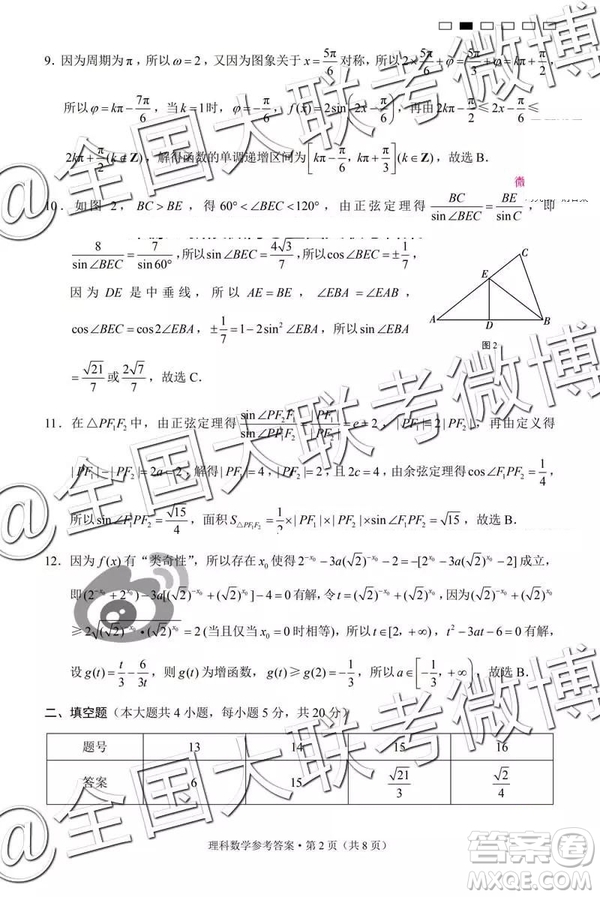 9．因为周期为π，所以ω=2，又因为图象关于x=5π/6对称，所以2×5π/6+φ=kπ+π/2，
所以φ=kπ-7π/6，当k=1时，φ=-π/6，f(x)=2sin(2x-π/6)，再由2kπ-π/2≤2x-π/6≤
2kπ+π/2(k∈Z)，解得函数的单调递增区间为[kπ-π/6，kπ+π/3](k∈Z)，故选B．
微
10．如图2，BC>BE，得60°<∠BEC<120°，由正弦定理得BC/sin∠BEC=BE/sin C，即
8/sin∠BEC=7/sin60°，所以sin∠BEC=4√3/7，所以cos∠BEC=±1/7，
因为DE是中垂线，所以AE=BE，∠EBA=∠EAB，
cos∠BEC=cos2∠EBA，±1/7=1-2sin²∠EBA，所以sin∠EBA
=√21/7或2√7/7，故选C．
C
E
A D B
图2
11．在△PF₁F₂中，由正弦定理得sin∠PF₂F₁/sin∠PF₁F₂=|PF₁|/|PF₂|=e=2，|PF₁|=2|PF₂|，再由定义得
|PF₁|-|PF₂|=2a=2，解得|PF₁|=4，|PF₂|=2，且2c=4，由余弦定理得cos∠F₁PF₂=1/4，
所以sin∠F₁PF₂=√15/4，面积S△PF₁F₂=1/2×|PF₁|×|PF₂|×sin∠F₁PF₂=√15，故选B．
12．因为f(x)有“类奇性”，所以存在x₀使得2^(-x₀)-3a(√2)^(-x₀)-2=-[2^(x₀)-3a(√2)^(x₀)-2]成立，
即(2^(-x₀)+2^(x₀))-3a[(√2)^(-x₀)+(√2)^(x₀)]-4=0有解，令t=(√2)^(-x₀)+(√2)^(x₀)，因为(√2)^(-x₀)+(√2)^(x₀)
≥2√((√2)^(-x₀)•(√2)^(x₀))=2(当且仅当x₀=0时相等)，所以t∈[2，+∞)，t²-3at-6=0有解，
设g(t)=t/3-6/3t，则g(t)为增函数，g(t)≥g(2)=-1/3，所以a∈[-1/3，+∞)，故选B．
二、填空题（本大题共4小题，每小题5分，共20分）
题号 13 14 15 16
答案 6 15 √21/3 √2/4
理科数学参考答案·第2页（共8页）
@全国大联考微博
@全国大联考微博
@全国大联考微博
答案圈
MXQE.COM